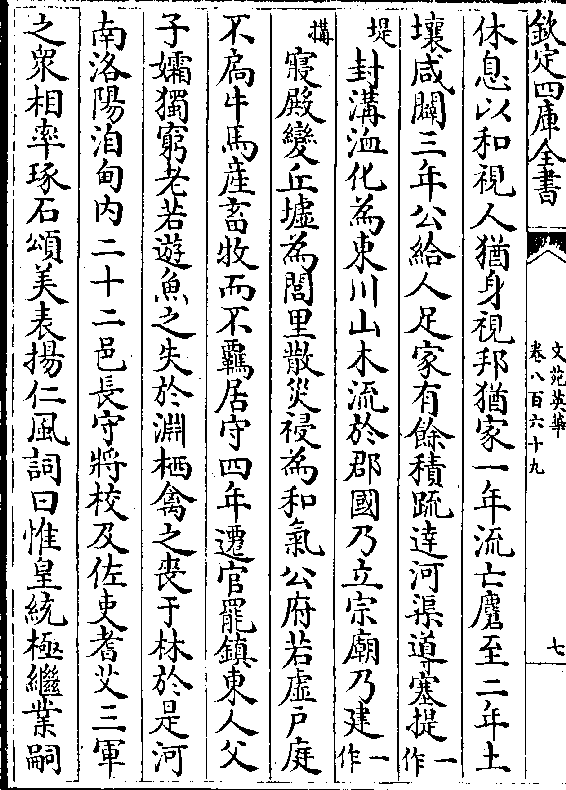 欽定四庫全書
文苑英華
卷八百六十九
七
休息以和視人猶身視邦猶家一年流亡麕至二年土
壤咸闢三年公給人足家有餘積䟽逹河渠導塞提一作
堤封溝洫化為東川山木流於郡國乃立宗廟乃建一作
搆寢殿變丘墟為閭里散災祲為和氣公府若虚戸庭
不扄牛馬産畜牧而不覊居守四年遷官罷鎮東人父
子孀獨窮老若遊魚之失於淵栖禽之喪于林於是河
南洛陽洎甸内二十二邑長守將校及佐吏耆艾三軍
之衆相率琢石頌美表揚仁風詞曰惟皇統極繼業嗣